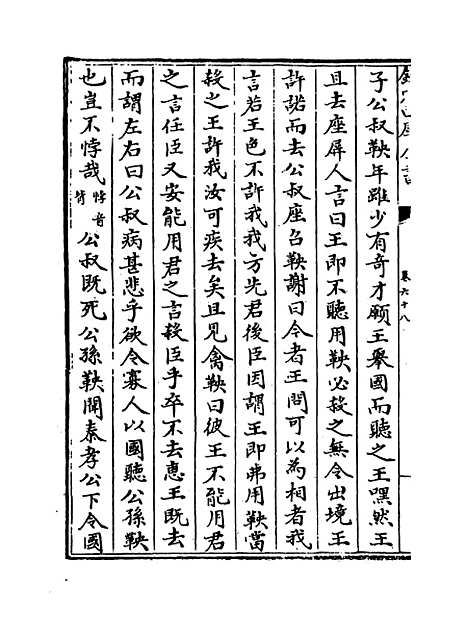 欽定四庫全書
卷六十八
子公叔鞅年雖少有奇才願王舉國而聽之王嘿然王
且去座屏人言曰王即不聽用鞅必殺之無令出境王
許諾而去公叔座召鞅謝曰今者王問可以為相者我
言若王色不許我我方先君後臣因謂王即弗用鞅當
殺之王許我汝可疾去矣且見禽鞅曰彼王不能用君
之言任臣又安能用君之言殺臣乎卒不去惠王既去
而謂左右曰公叔病甚悲乎欲令寡人以國聽公孫鞅
也豈不悖哉悖音背公叔既死公孫鞅聞秦孝公下令國